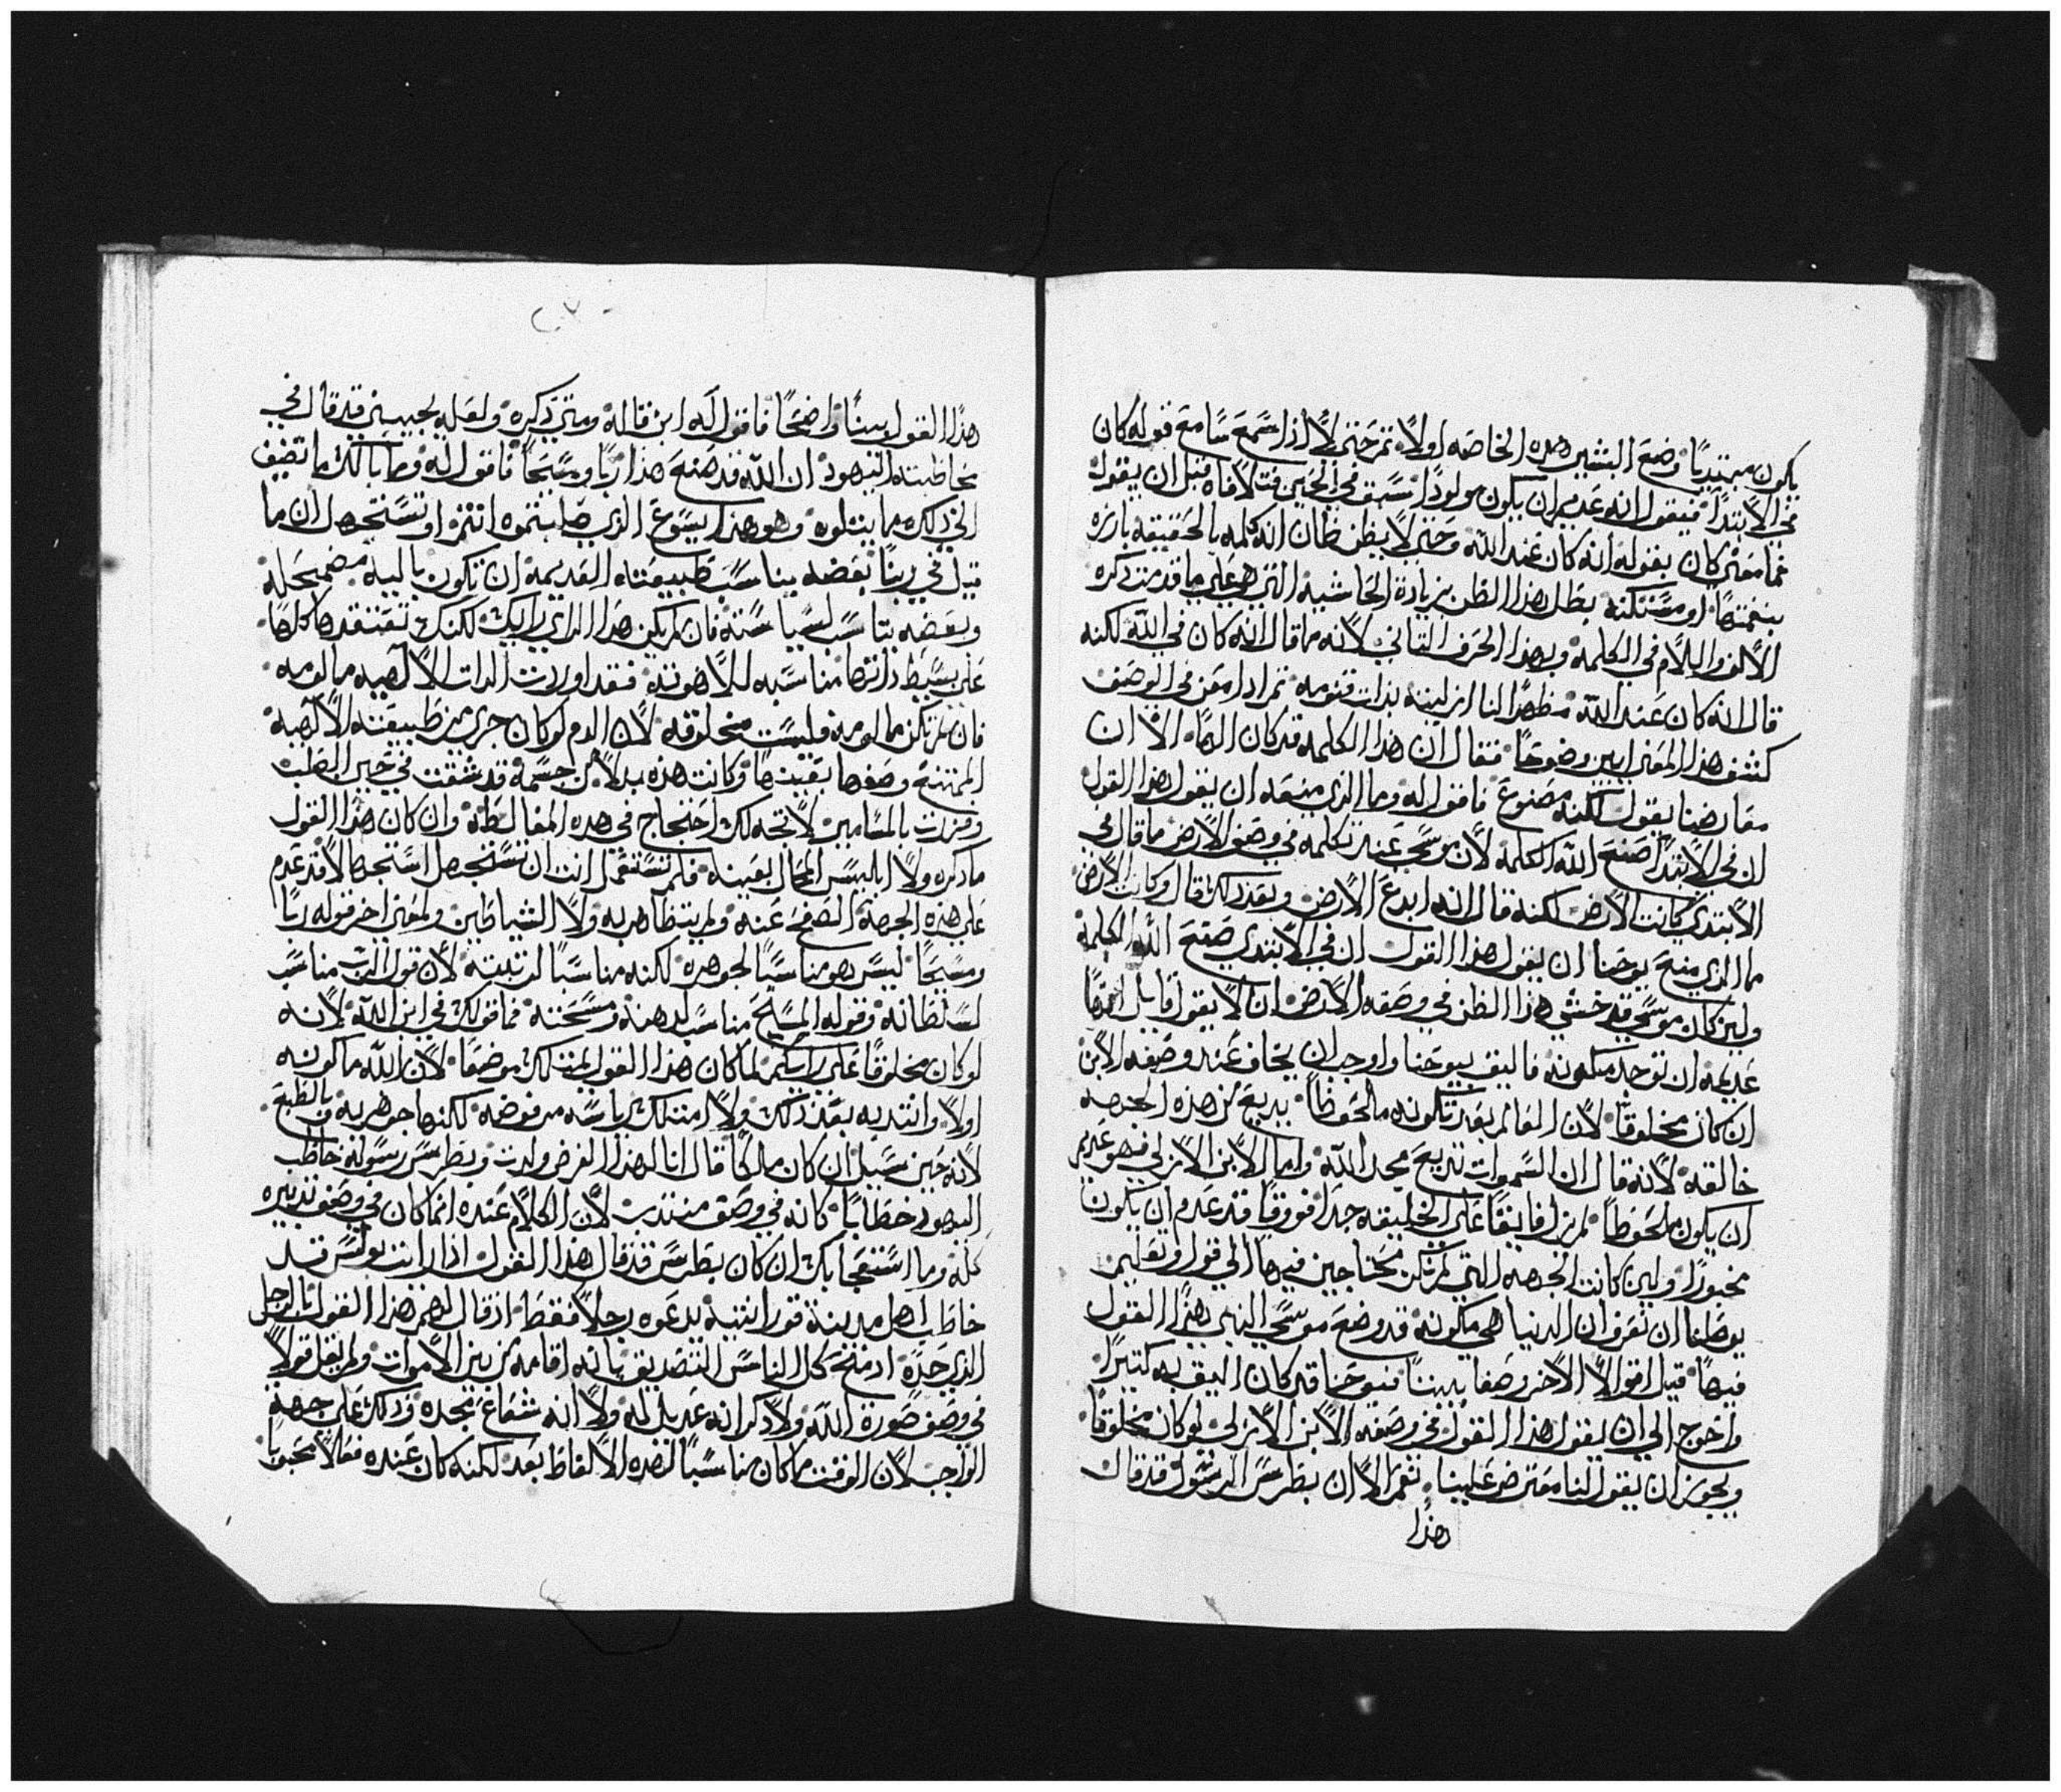 يكون مبتديًا وضع البشير هذه الخاصه اولاً ثم حتى لا اذا سمع سامع قوله كان
في الابتدا فيقول انه عديم ان يكون مولودًا سبق في الحين فتلافاه قبل ان يقول
فما معنى كان بقوله انه كان عند الله وحتى لا يظن ظان انه كلمه بالحقيقه بارزه
بنغمتها او مستكنه بطل هذا الظن بزيادة الحاشيه التي هي على ما قدمت ذكره
الالف واللام في الكلمه وبهذا الحرف التاني لانه ما قال انه كان في الله لكنه
قال انه كان عند الله مظهرًا لنا ازليته بذات قنومه ثم اذا امعن في الوصف
كشف هذا المعنى ابين وضوحًا فقال ان هذا الكلمه قد كان الهًا الا ان
معارضنا يقول لكنه مصنوع فاقول له وما الذي منعه ان يقول هذا القول
ان في الابتدا صنع الله الكلمه لان موسى عند تكلمه في وصف الارض ما قال في
الابتدي كانت الارض لكنه قال انه ابدع الارض وبعد ذلك قال وكانت الارض
ما الذي منع يوحنا ان يقول هذا القول ان في الابتدي صنع الله الكلمة
ولين كان موسى قد خشي هذا الظن في وصفه الارض ان لا يقول قايل انها
عديمه ان توجد مكونه فاليق بيوحنا واوجب ان يخاف عند وصفه الابن
ان كان مخلوقًا لان العالم بعد تكونه ملحوظًا يديع من هذه الجهه
خالقه لانه قال ان السموات تديع مجد الله واما الابن الازلي فهو عديم
ان يكون ملحوظًا لم يزل فايقًا على الخليقه جدًا فوقًا قد عدم ان يكون
مخبورًا ولين كانت الجهه التي لم نكن محتاجين فيها الى قول وتعليم
يوصلنا ان نعرف ان الدنيا هي مكونه قد وضع موسى النبي هذا القول
فيها قبل اقواله الاخر وصفا بيننًا فيوحنا قد كان اليق به كتيرًا
واحوج الى ان يقول هذا القول في وصفه الابن الازلي لو كان مخلوقًا
ويجوز ان يقول لنا معترض علينا نعم الا ان بطرس الرسول قد قال
هذا
هذا القول بينًا واضحًا فاقول له اين قاله ومتى ذكره ولعله يجيبني قد قال في
مخاطبته اليهود ان الله قد صنع هذا ربًا ومسيحًا فاقول له وما بالك ما تضيف
الى ذلك ما يتلوه وهو هذا يسوع الذي صلبتموه انتم او تستجهل ان ما
قيل في ربنا بعضه يناسب طبيعته العديمه ان تكون باليه مضمحله
وبعضه يناسب لسياسته فان لم يكن هذا الراي رايك لكنك تعتقدها كلها
على بسيط ذاتها مناسبه للاهوته فقد اوردت الدات الالهيه مالومه
فان لم تكن مالومه فليست مخلوقه لان الدم لو كان جرى من طبيعته الالهية
الممتنع وصفها بقيتها وكانت هذه بدلاً من جسمه قد شققت في حين الصلب
ومزدت بالمسامير لاتجه لك احتجاج في هذه المغالطه وان كان هذا القول
ما ذكره ولا ابليس المحال بعينه فلم تستعمل انت ان تستجهل استجهالاً قد عدم
على هذه الجهة الصفح عنه ولم يتظاهر به ولا الشياطين ولمعنى اخر قوله ربًا
ومسيحًا ليس هو مناسبًا لجوهره لكنه مناسبًا لمرتبته لان قول الرب مناسب
لسلطانه وقوله المسيح مناسب لدهنه ومسحته فما قولك في ابن الله لانه
لو كان مخلوقًا على رايكم لما كان هذا القول يمتلك موضعًا لان الله ما كونه
اولاً وانتدبه بعد ذلك ولا امتلك رياسه مرفوضه لكنها جوهريه في الطبع
لانه حين سيل ان كان ملكًا قال انا لهذا الغرض ولدت وبطرس رسوله خاطب
اليهود خطابًا كانه في وصف منتدب لان الكلام عنده انما كان في وصف تدبيره
كله وما استعجابك ان كان بطرس قد قال هذا القول اذا رايت بولس قد
خاطب اهل مدينة قورانتيه يدعوه رجلاً فقط اذ قال لهم هذا القول بالرجل
الذي حده اذ منح كل الناس التصديق بانه اقامه من بين الاموات ولم يقل قولاً
في وصف صورة الله ولا ذكر انه عديل له ولا انه شعاع مجده وذلك على جهة
الواجب لان الوقت ما كان مناسبًا لهذه الالفاظ بعد لكنه كان عنده فعالاً محبوبًا